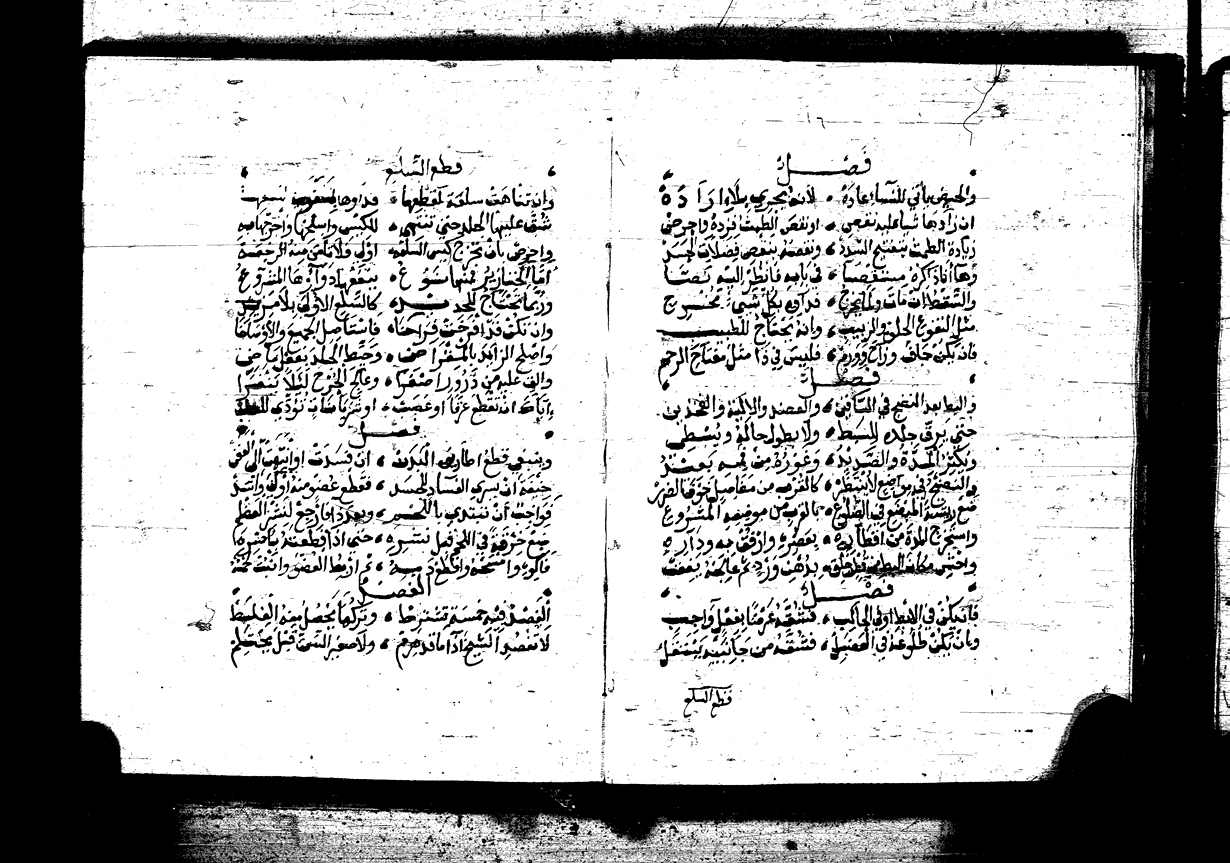 فصل
والحيض يأتي للنساء عادة لأنه يجري بلا إرادة
ان زادها شيا عليه نقص او نقص الطمث فزده واحرص
زيادة الطمث بتفتيح السدد ونقصه بنقص فضلات الجسد
وها أنا ذاكره مستقصا في بابه فانظر اليه نصا
والسقط ان مات ولما يخرج فداوه بكل شيء يخرج
مثل النقوع الحلو والزبيب وانه يحتاج للطبيب
فان يكن جاف وراح وورم فليس في ذا مثل مفتاح الرحم
فصل
والبط بعد النضج في الساقين والعضد والالية والفخذين
حتى يرق جلده للبسط ولا يطول حاله ويبطي
وتكثر المدة والصديد وغوره من فمه بعيد
والبعض في مواضع لا ينتظر كالقرب من مفاصل خوف الضرر
ضع ريشة المبضع في الضلوع بالقرب من موضعه المشروع
واستخرج المدة من اقطاره بعصره وارفق به وداره
واحش مكان البط بدهن ورد ثم عالجه بعفت
فصل
فان يكن في الابط اولى الحالب فشقه عرضا بفعل واجب
وبان يكن طلوعه في العضل فشقه من جانبيه ينفعل
قطع السلع
قطع السلع
وان تناهت سلعة لقطعها فداوها
شق عليها الجلد حتى تنتهي للكيس واسلخها واخرجها به
واحرص بان تخرج كيس السلعه اولى فلا تأمن منه الرجعه
اما الخنازير فمنها نوع ينفعها دواؤها المشروع
وربما تحتاج للحديد كالسلع الاولى بلا مزيد
وان تكن قد افرخت فراخا فاستأصل الجميع والا
واصلح الزائد بالمقراض وخيط الجلد بفعل ماض
والق عليه من ذرور اصفرا وعالج الجرح لئلا يتغيرا
اياك ان تقطع عرقا او عصب او شريانات تؤدي للعطب
فصل
وينبغي قطع اطاريف البدن ان فسدت او انتهت الى العفن
خيفة ان يسري الفساد للجسد فقطع عضو منه اولى واشد
فواجب ان تبتدي باللحم وبعد ذا فارجع لنشر العظم
ضع خرقة في اللحم قبل نشره حتى اذا قطعته باسره
فاكوه وامسحه واقطع دمه ثم اربط العضو وانبت لحمه
الفصد
الفصد فيه خمسة تشترط وتركها يحصل منه الغلط
لا تفصد الشيخ اذا ما قد هرم ولا صغير السن قبل يحتلم